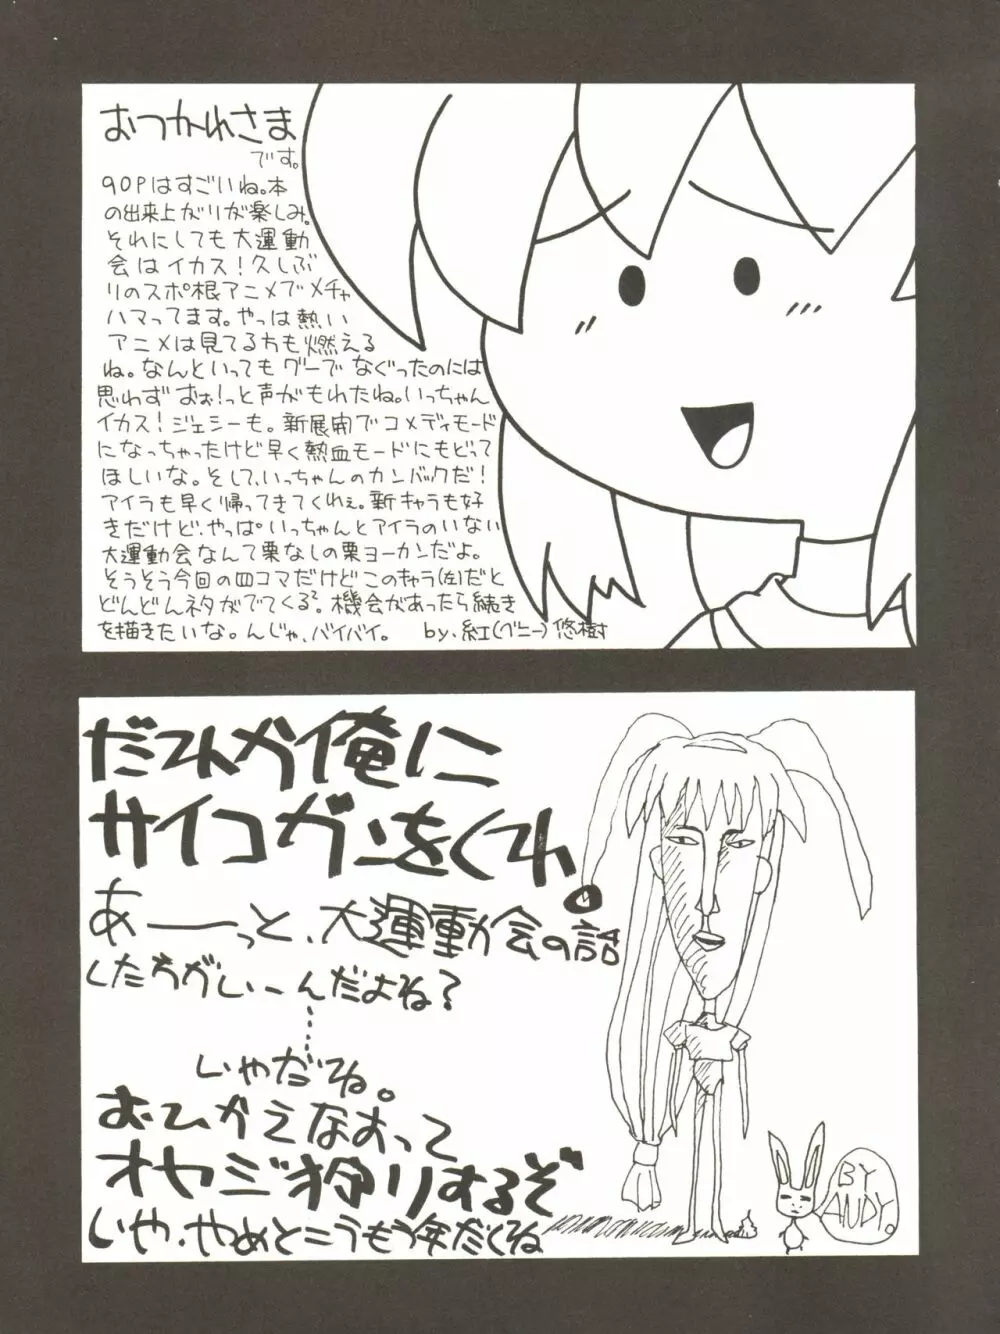 おつかれさま
です。
90Pはすごいね。本
の出来上がりが楽しみ。
それにしても大運動
会はイカス！久しぶ
りのスポ根アニメでメチャ
ハマってます。やっぱ熱い
アニメは見てる方も燃える
ね。なんといってもグーでなぐったのには
思わずおぉ！っと声がもれたね。いっちゃん
イカス！ジェシーも。新展開でコメディモード
になっちゃったけど早く熱血モードにもどって
ほしいな。そしていっちゃんのカンバックだ！
アイラも早く帰ってきてくれぇ。新キャラも好
きだけど、やっぱいっちゃんとアイラのいない
大運動会なんて栗なしの栗ヨーカンだよ。
そうそう今回の四コマだけどこのキャラ(左)だと
どんどんネタがでてくる²。機会があったら続き
を描きたいな。んじゃ、バイバイ。 by.紅(べニー)悠樹
だれか俺に
サイコガンをくれ。
あーっと、大運動会の話
したちがいーんだよね？
……
いやだね。
おひかえなすって
オヤジ狩りするぞ
いや、やめとこうもう年だしね
BY
ANDY。